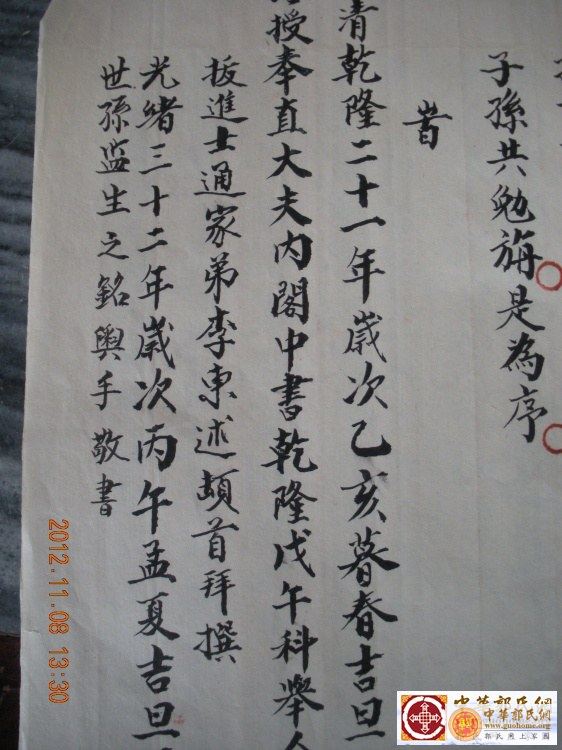 子孫共勉旃是為序
旹
清乾隆二十一年歲次乙亥暮春吉旦
授奉直大夫内閣中書乾隆戊午科舉人
拔進士通家弟李東述頓首拜撰
光緒三十二年歲次丙午孟夏吉旦
世孫監生之銘輿手敬書
2012.11.08 13:30
中華郭氏網
中华郭氏网
www.guohome.org
郭氏網上家園